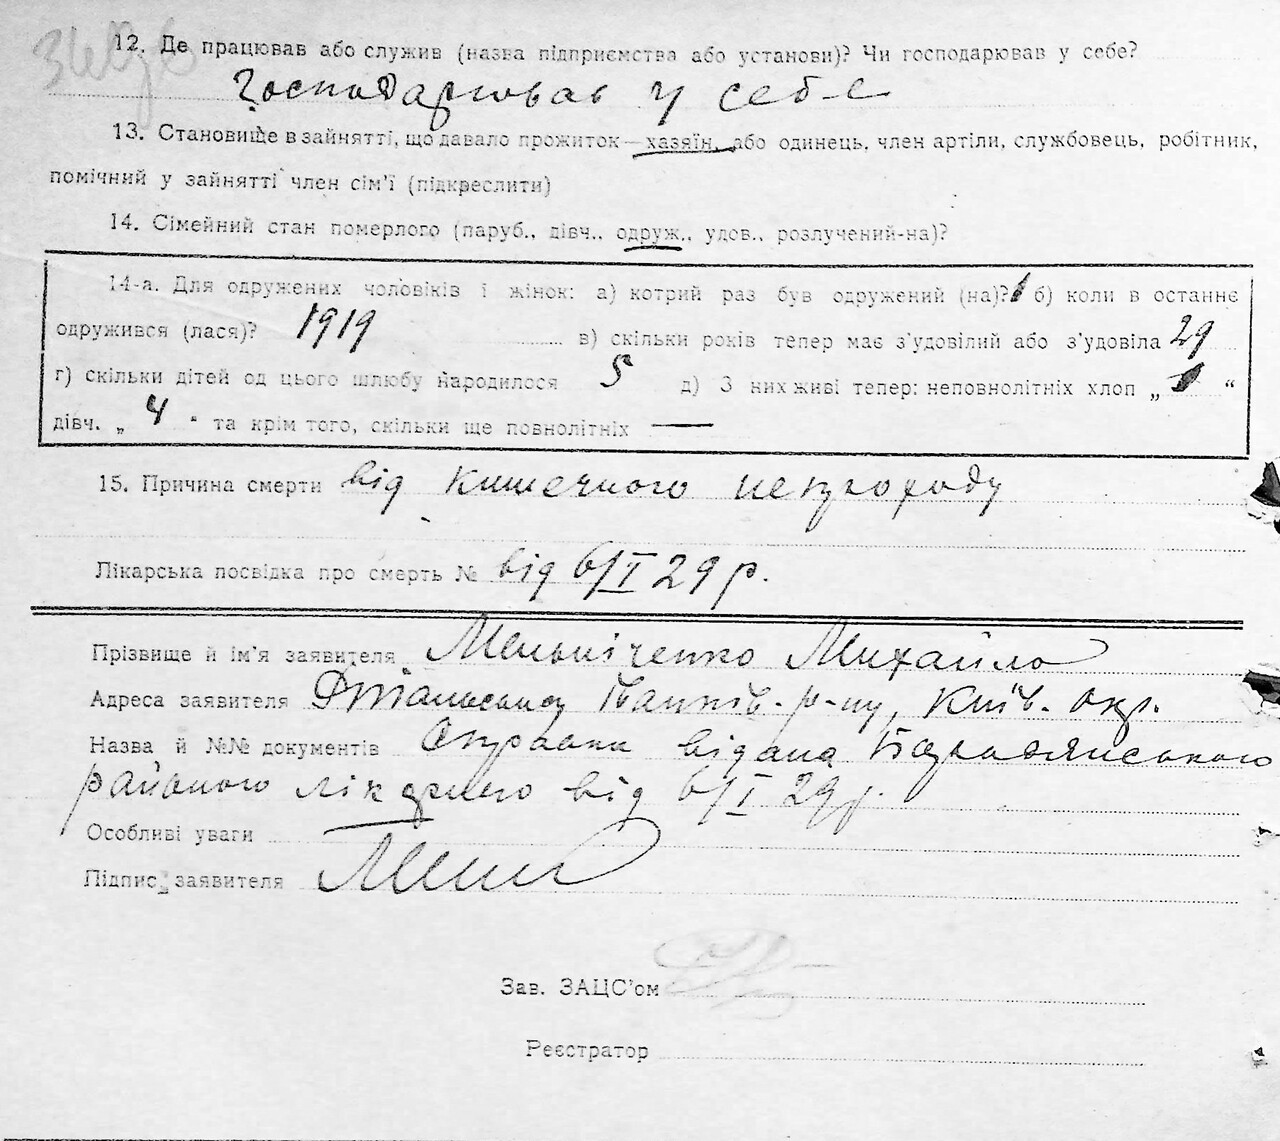 12. Де працював або служив (назва підприємства або установи)? Чи господарював у себе?
Господарював у себе
13. Становище в зайнятті, що давало прожиток—хазяїн, або одинець, член артіли, службовець, робітник,
помічний у зайнятті член сім'ї (підкреслити)
14. Сімейний стан померлого (паруб., дівч., одруж., удов., розлучений-на)?
14-а. Для одружених чоловіків і жінок: а) котрий раз був одружений (на)? 1 б) коли в останнє
одружився (лася)? 1919 в) скільки років тепер має з'удовілий або з'удовіла 29
г) скільки дітей од цього шлюбу народилося 5 д) З них живі тепер: неповнолітніх хлоп „ 1 “
дівч. „ 4 “ та крім того, скільки ще повнолітніх —
15. Причина смерти від кишечного непроходу
Лікарська посвідка про смерть № від 6/I 29 р.
Прізвище й ім'я заявителя Мельніченко Михайло
Адреса заявителя р-ну, Київ. окр.
Назва й №№ документів Справка відана Бородянського
районого лікарнею від 6/I 29 р.
Особливі уваги
Підпис заявителя
Зав. ЗАЦС'ом
Реєстратор